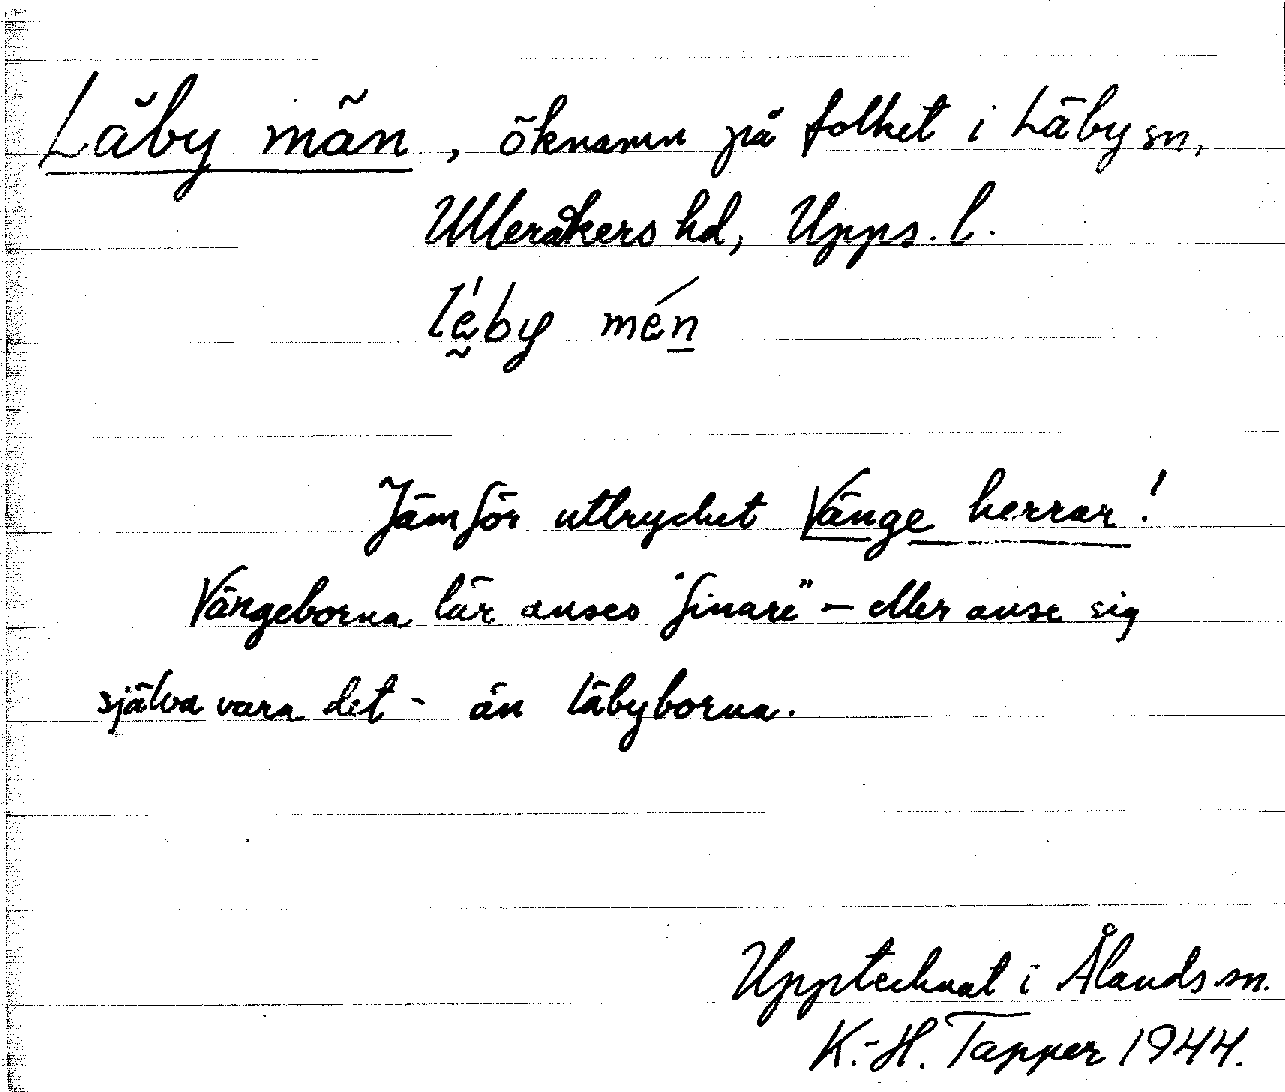 Läby män, öknamn på folket i Läby sn,
Ulleråkers hd, Upps. l.
lḛ́by mén̲
Jämför uttrycket Vänge herrar!
Vängeborna lär anses "finare" – eller anse sig
själva vara det – än läbyborna.
Upptecknat i Ålands sn.
K.-H. Tapper 1944.